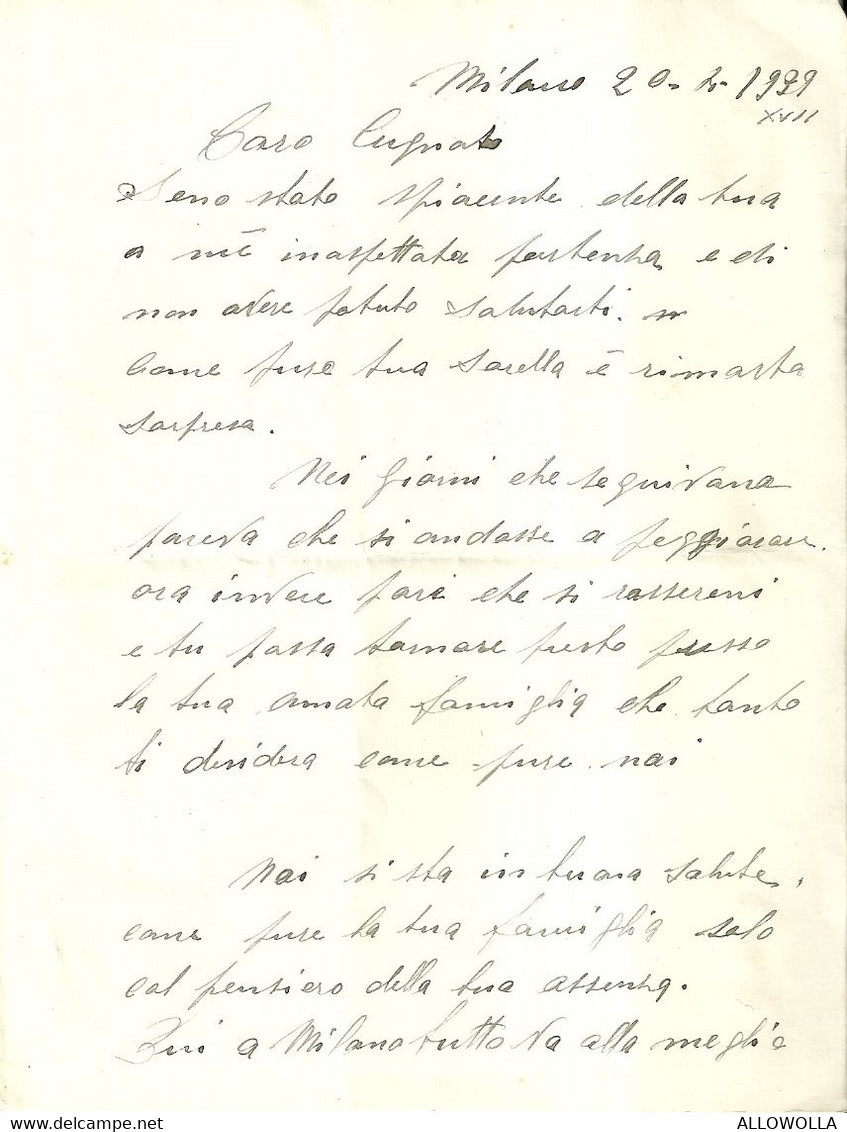 Milano 20-4-1939
XVII
Caro Cugnato
Seno stato spiacente della tua
a mè inaspettata partenza e di
non avere potuto salutarti.
Come pure tua sorella è rimasta
sorpresa.
Nei giorni che seguivana
pareva che si andasse a peggiorare.
ora invece pare che si rassereni
e tu possa tornare presto presso
la tua amata famiglia che tanto
ti desidera come pure noi
Noi si sta in buona salute,
come pure la tua famiglia solo
col pensiero della tua assenza.
Qui a Milano tutto va alla meglio
www.delcampe.net
ALLOWOLLA